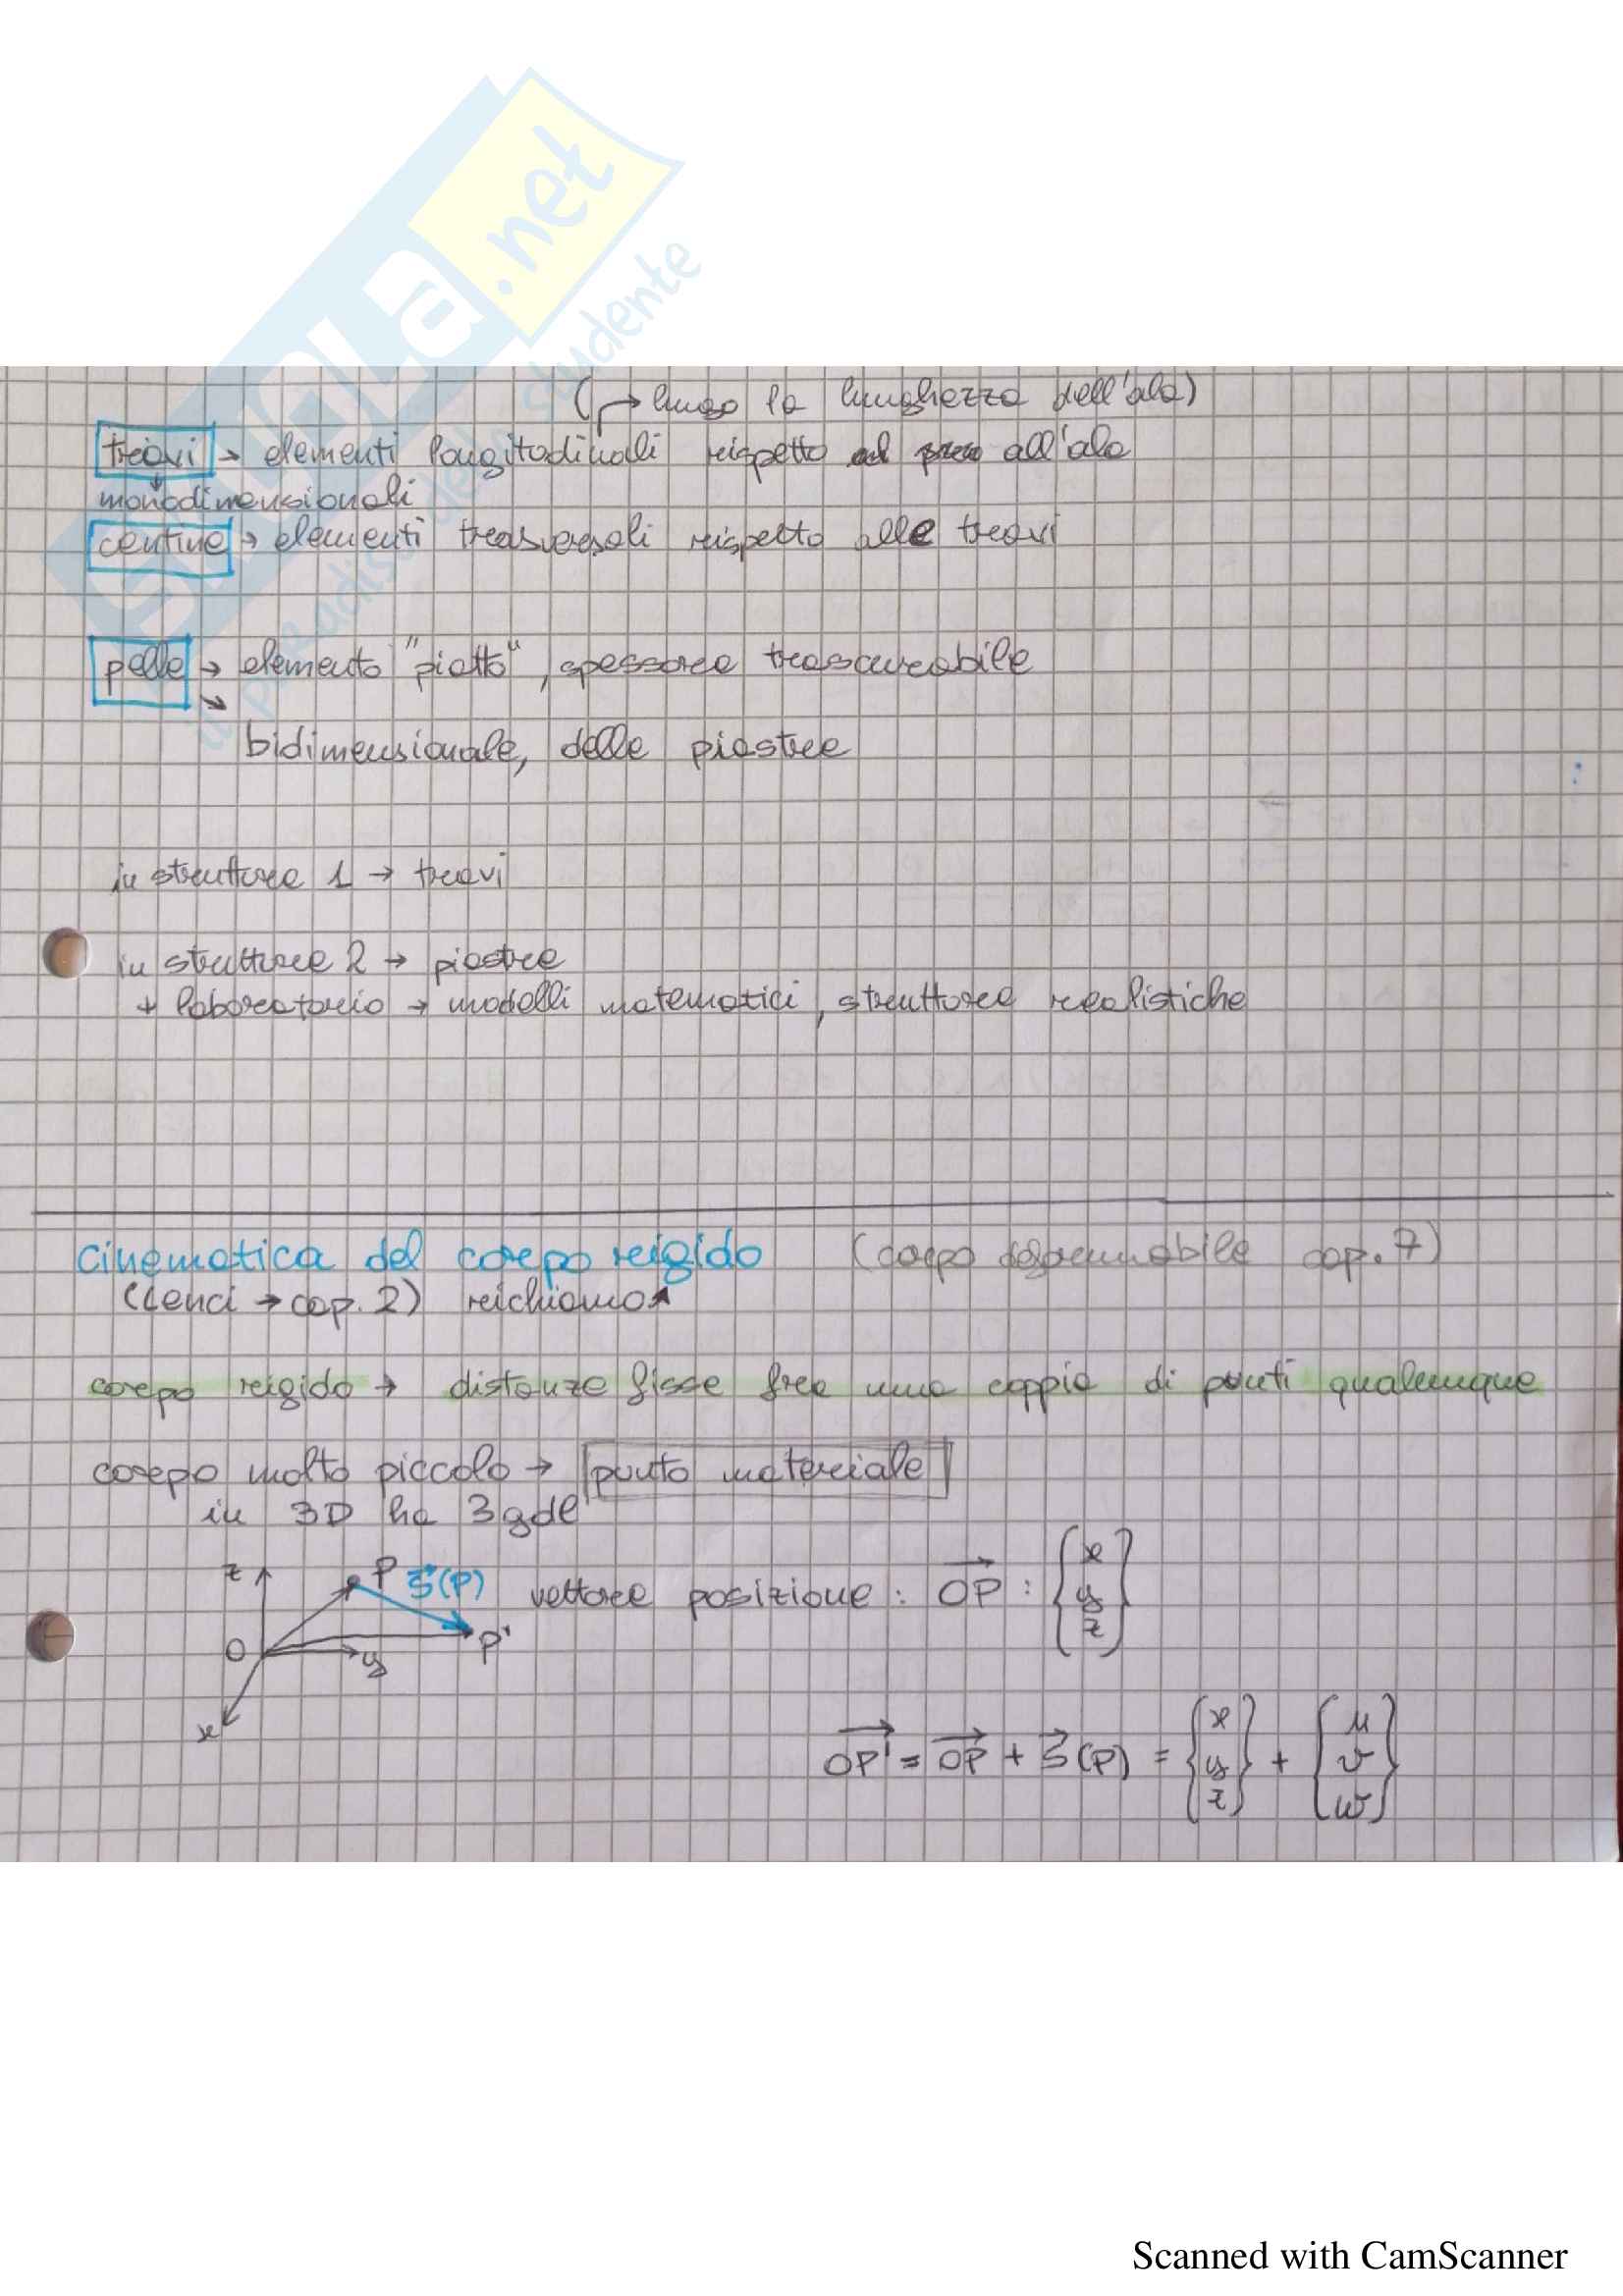 SKUOLA.net
il paradiso dello studente
(→ lungo la lunghezza dell'ala)
travi → elementi longitudinali rispetto all'ala
monodimensionali
centine → elementi trasversali rispetto alle travi
pelle → elemento "piatto", spessore trascurabile
bidimensionale, delle piastre
in strutture 1 → travi
in strutture 2 → piastre
+ laboratorio → modelli matematici, strutture realistiche
cinematica del corpo rigido (corpo deformabile cap. 7)
(Lenci → cap. 2) richiamo
corpo rigido → distanze fisse fra una coppia di punti qualunque
corpo molto piccolo → punto materiale
in 3D ha 3 gdl
z P S(P) vettore posizione: OP: {x y z}
O y P'
x
OP' = OP + S(P) = {x y z} + {u v w}
Scanned with CamScanner